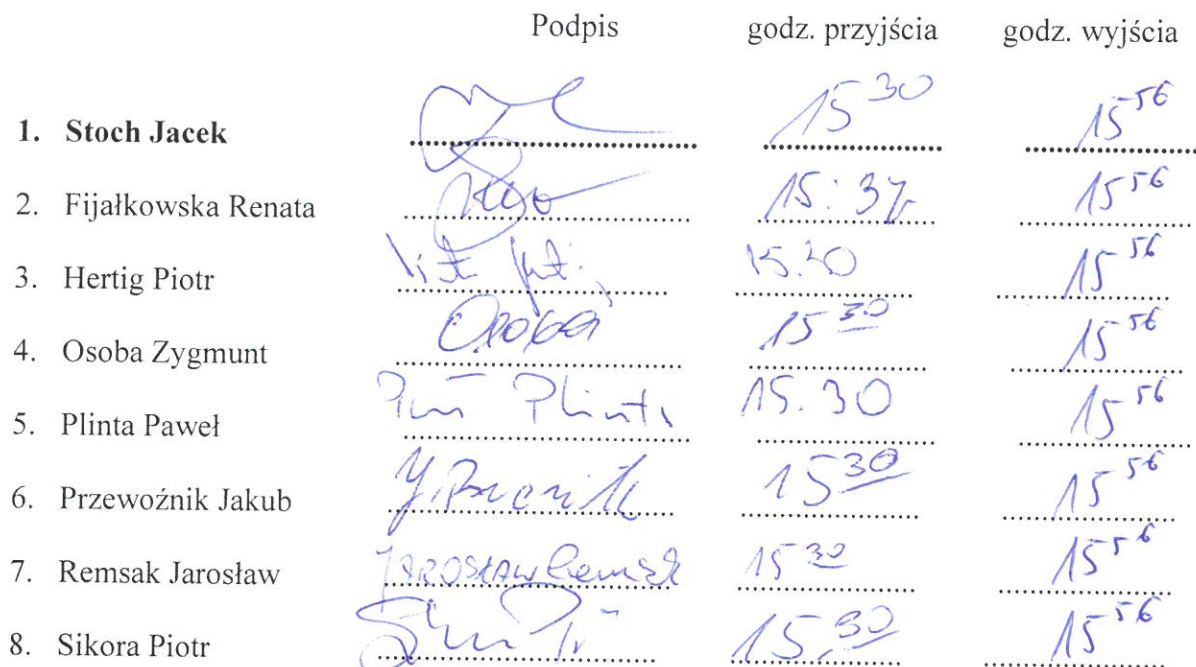 Podpis godz. przyjścia godz. wyjścia
1. Stoch Jacek 15 30 15 56
2. Fijałkowska Renata 15:37 15 56
3. Hertig Piotr 15.30 15 56
4. Osoba Zygmunt Osoba 15 30 15 56
5. Plinta Paweł Plinta 15.30 15 56
6. Przewoźnik Jakub 15 30 15 56
7. Remsak Jarosław JAROSŁAW Remsak 15 30 15 56
8. Sikora Piotr 15.30 15 56